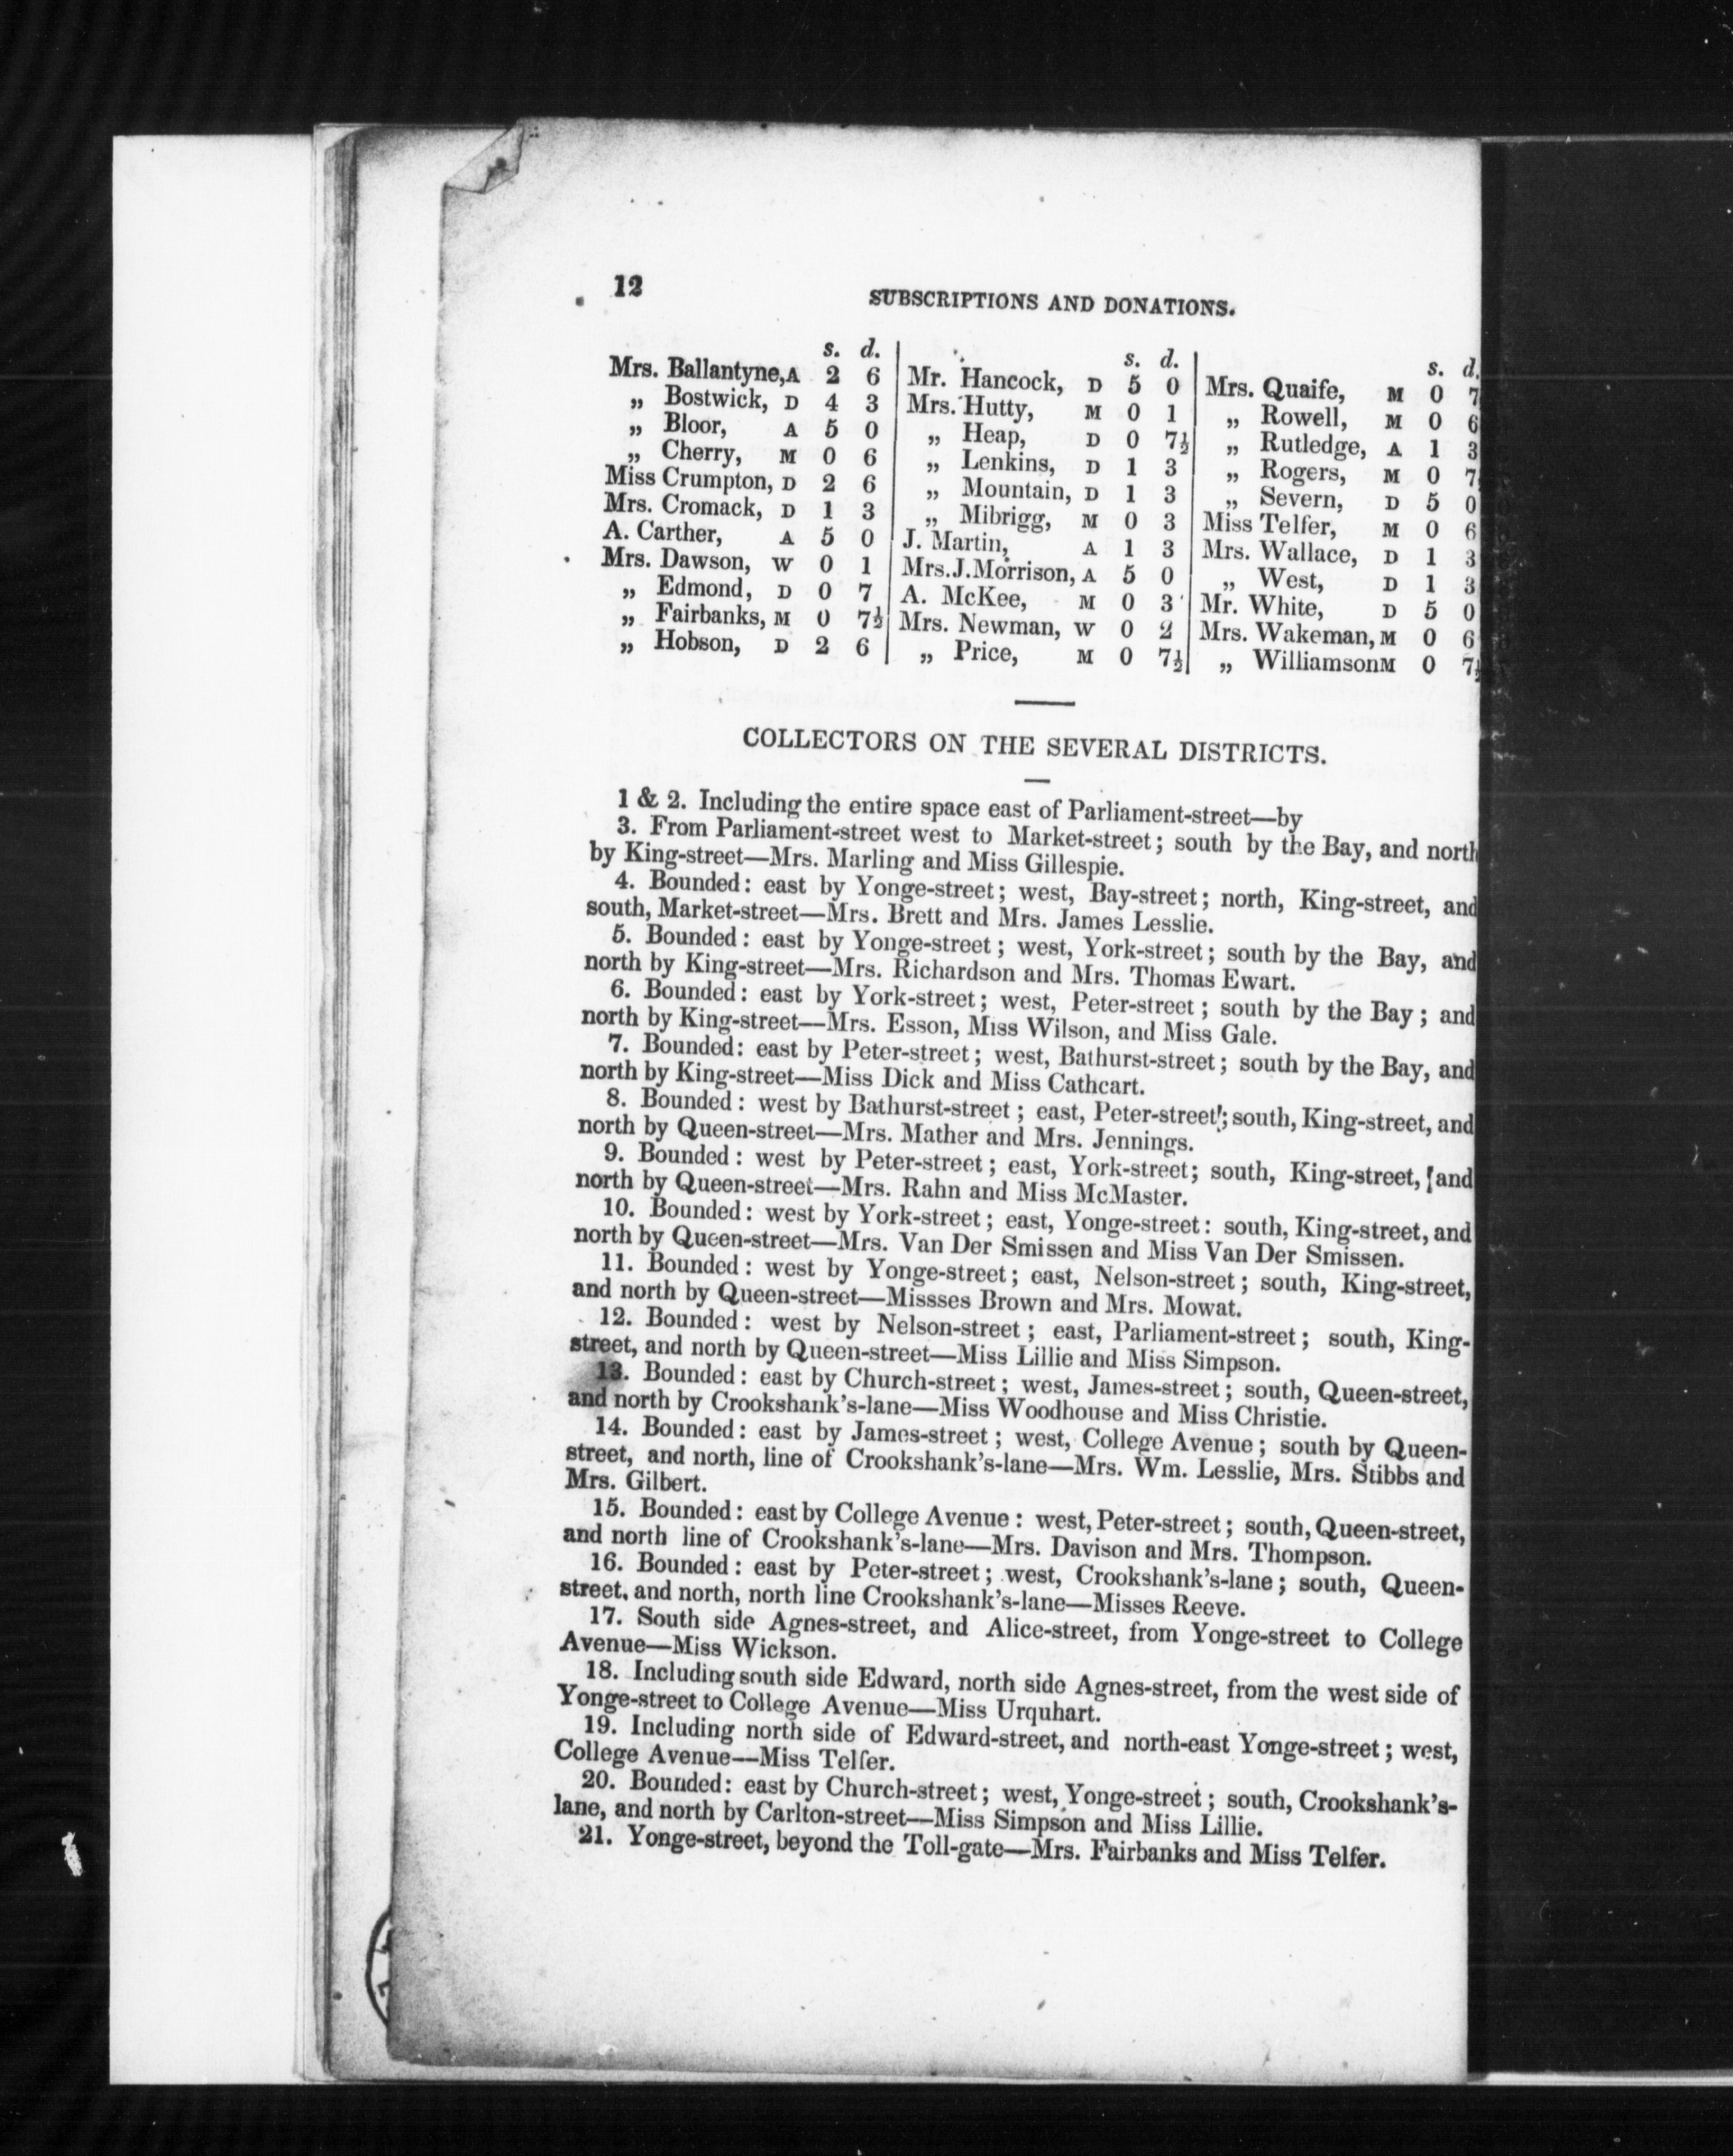 12
SUBSCRIPTIONS AND DONATIONS.
s. d.
Mrs. Ballantyne, A 2 6
„ Bostwick, D 4 3
„ Bloor, A 5 0
„ Cherry, M 0 6
Miss Crumpton, D 2 6
Mrs. Cromack, D 1 3
A. Carther, A 5 0
Mrs. Dawson, W 0 1
„ Edmond, D 0 7
„ Fairbanks, M 0 7½
„ Hobson, D 2 6
s. d.
Mr. Hancock, D 5 0
Mrs. Hutty, M 0 1
„ Heap, D 0 7½
„ Lenkins, D 1 3
„ Mountain, D 1 3
„ Mibrigg, M 0 3
J. Martin, A 1 3
Mrs. J. Morrison, A 5 0
A. McKee, M 0 3
Mrs. Newman, W 0 2
„ Price, M 0 7½
s. d.
Mrs. Quaife, M 0 7
„ Rowell, M 0 6
„ Rutledge, A 1 3
„ Rogers, M 0 7
„ Severn, D 5 0
Miss Telfer, M 0 6
Mrs. Wallace, D 1 3
„ West, D 1 3
Mr. White, D 5 0
Mrs. Wakeman, M 0 6
„ Williamson M 0 7½
COLLECTORS ON THE SEVERAL DISTRICTS.
1 & 2. Including the entire space east of Parliament-street—by
3. From Parliament-street west to Market-street; south by the Bay, and north
by King-street—Mrs. Marling and Miss Gillespie.
4. Bounded: east by Yonge-street; west, Bay-street; north, King-street, and
south, Market-street—Mrs. Brett and Mrs. James Lesslie.
5. Bounded: east by Yonge-street; west, York-street; south by the Bay, and
north by King-street—Mrs. Richardson and Mrs. Thomas Ewart.
6. Bounded: east by York-street; west, Peter-street; south by the Bay; and
north by King-street—Mrs. Esson, Miss Wilson, and Miss Gale.
7. Bounded: east by Peter-street; west, Bathurst-street; south by the Bay, and
north by King-street—Miss Dick and Miss Cathcart.
8. Bounded: west by Bathurst-street; east, Peter-street; south, King-street, and
north by Queen-street—Mrs. Mather and Mrs. Jennings.
9. Bounded: west by Peter-street; east, York-street; south, King-street, and
north by Queen-street—Mrs. Rahn and Miss McMaster.
10. Bounded: west by York-street; east, Yonge-street: south, King-street, and
north by Queen-street—Mrs. Van Der Smissen and Miss Van Der Smissen.
11. Bounded: west by Yonge-street; east, Nelson-street; south, King-street,
and north by Queen-street—Missses Brown and Mrs. Mowat.
12. Bounded: west by Nelson-street; east, Parliament-street; south, King-
street, and north by Queen-street—Miss Lillie and Miss Simpson.
13. Bounded: east by Church-street; west, James-street; south, Queen-street,
and north by Crookshank's-lane—Miss Woodhouse and Miss Christie.
14. Bounded: east by James-street; west, College Avenue; south by Queen-
street, and north, line of Crookshank's-lane—Mrs. Wm. Lesslie, Mrs. Stibbs and
Mrs. Gilbert.
15. Bounded: east by College Avenue: west, Peter-street; south, Queen-street,
and north line of Crookshank's-lane—Mrs. Davison and Mrs. Thompson.
16. Bounded: east by Peter-street; west, Crookshank's-lane; south, Queen-
street, and north, north line Crookshank's-lane—Misses Reeve.
17. South side Agnes-street, and Alice-street, from Yonge-street to College
Avenue—Miss Wickson.
18. Including south side Edward, north side Agnes-street, from the west side of
Yonge-street to College Avenue—Miss Urquhart.
19. Including north side of Edward-street, and north-east Yonge-street; west,
College Avenue—Miss Telfer.
20. Bounded: east by Church-street; west, Yonge-street; south, Crookshank's-
lane, and north by Carlton-street—Miss Simpson and Miss Lillie.
21. Yonge-street, beyond the Toll-gate—Mrs. Fairbanks and Miss Telfer.